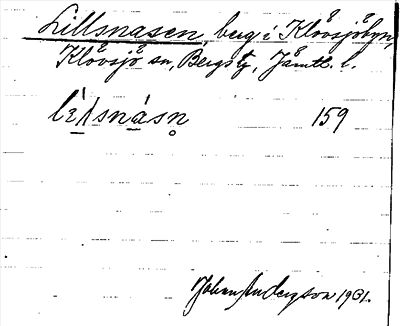 Lillsnasen, berg i Klövsjöbyn,
Klövsjö sn, Bergs tg, Jämtl. l.
159
Johan Anderzson 1931.